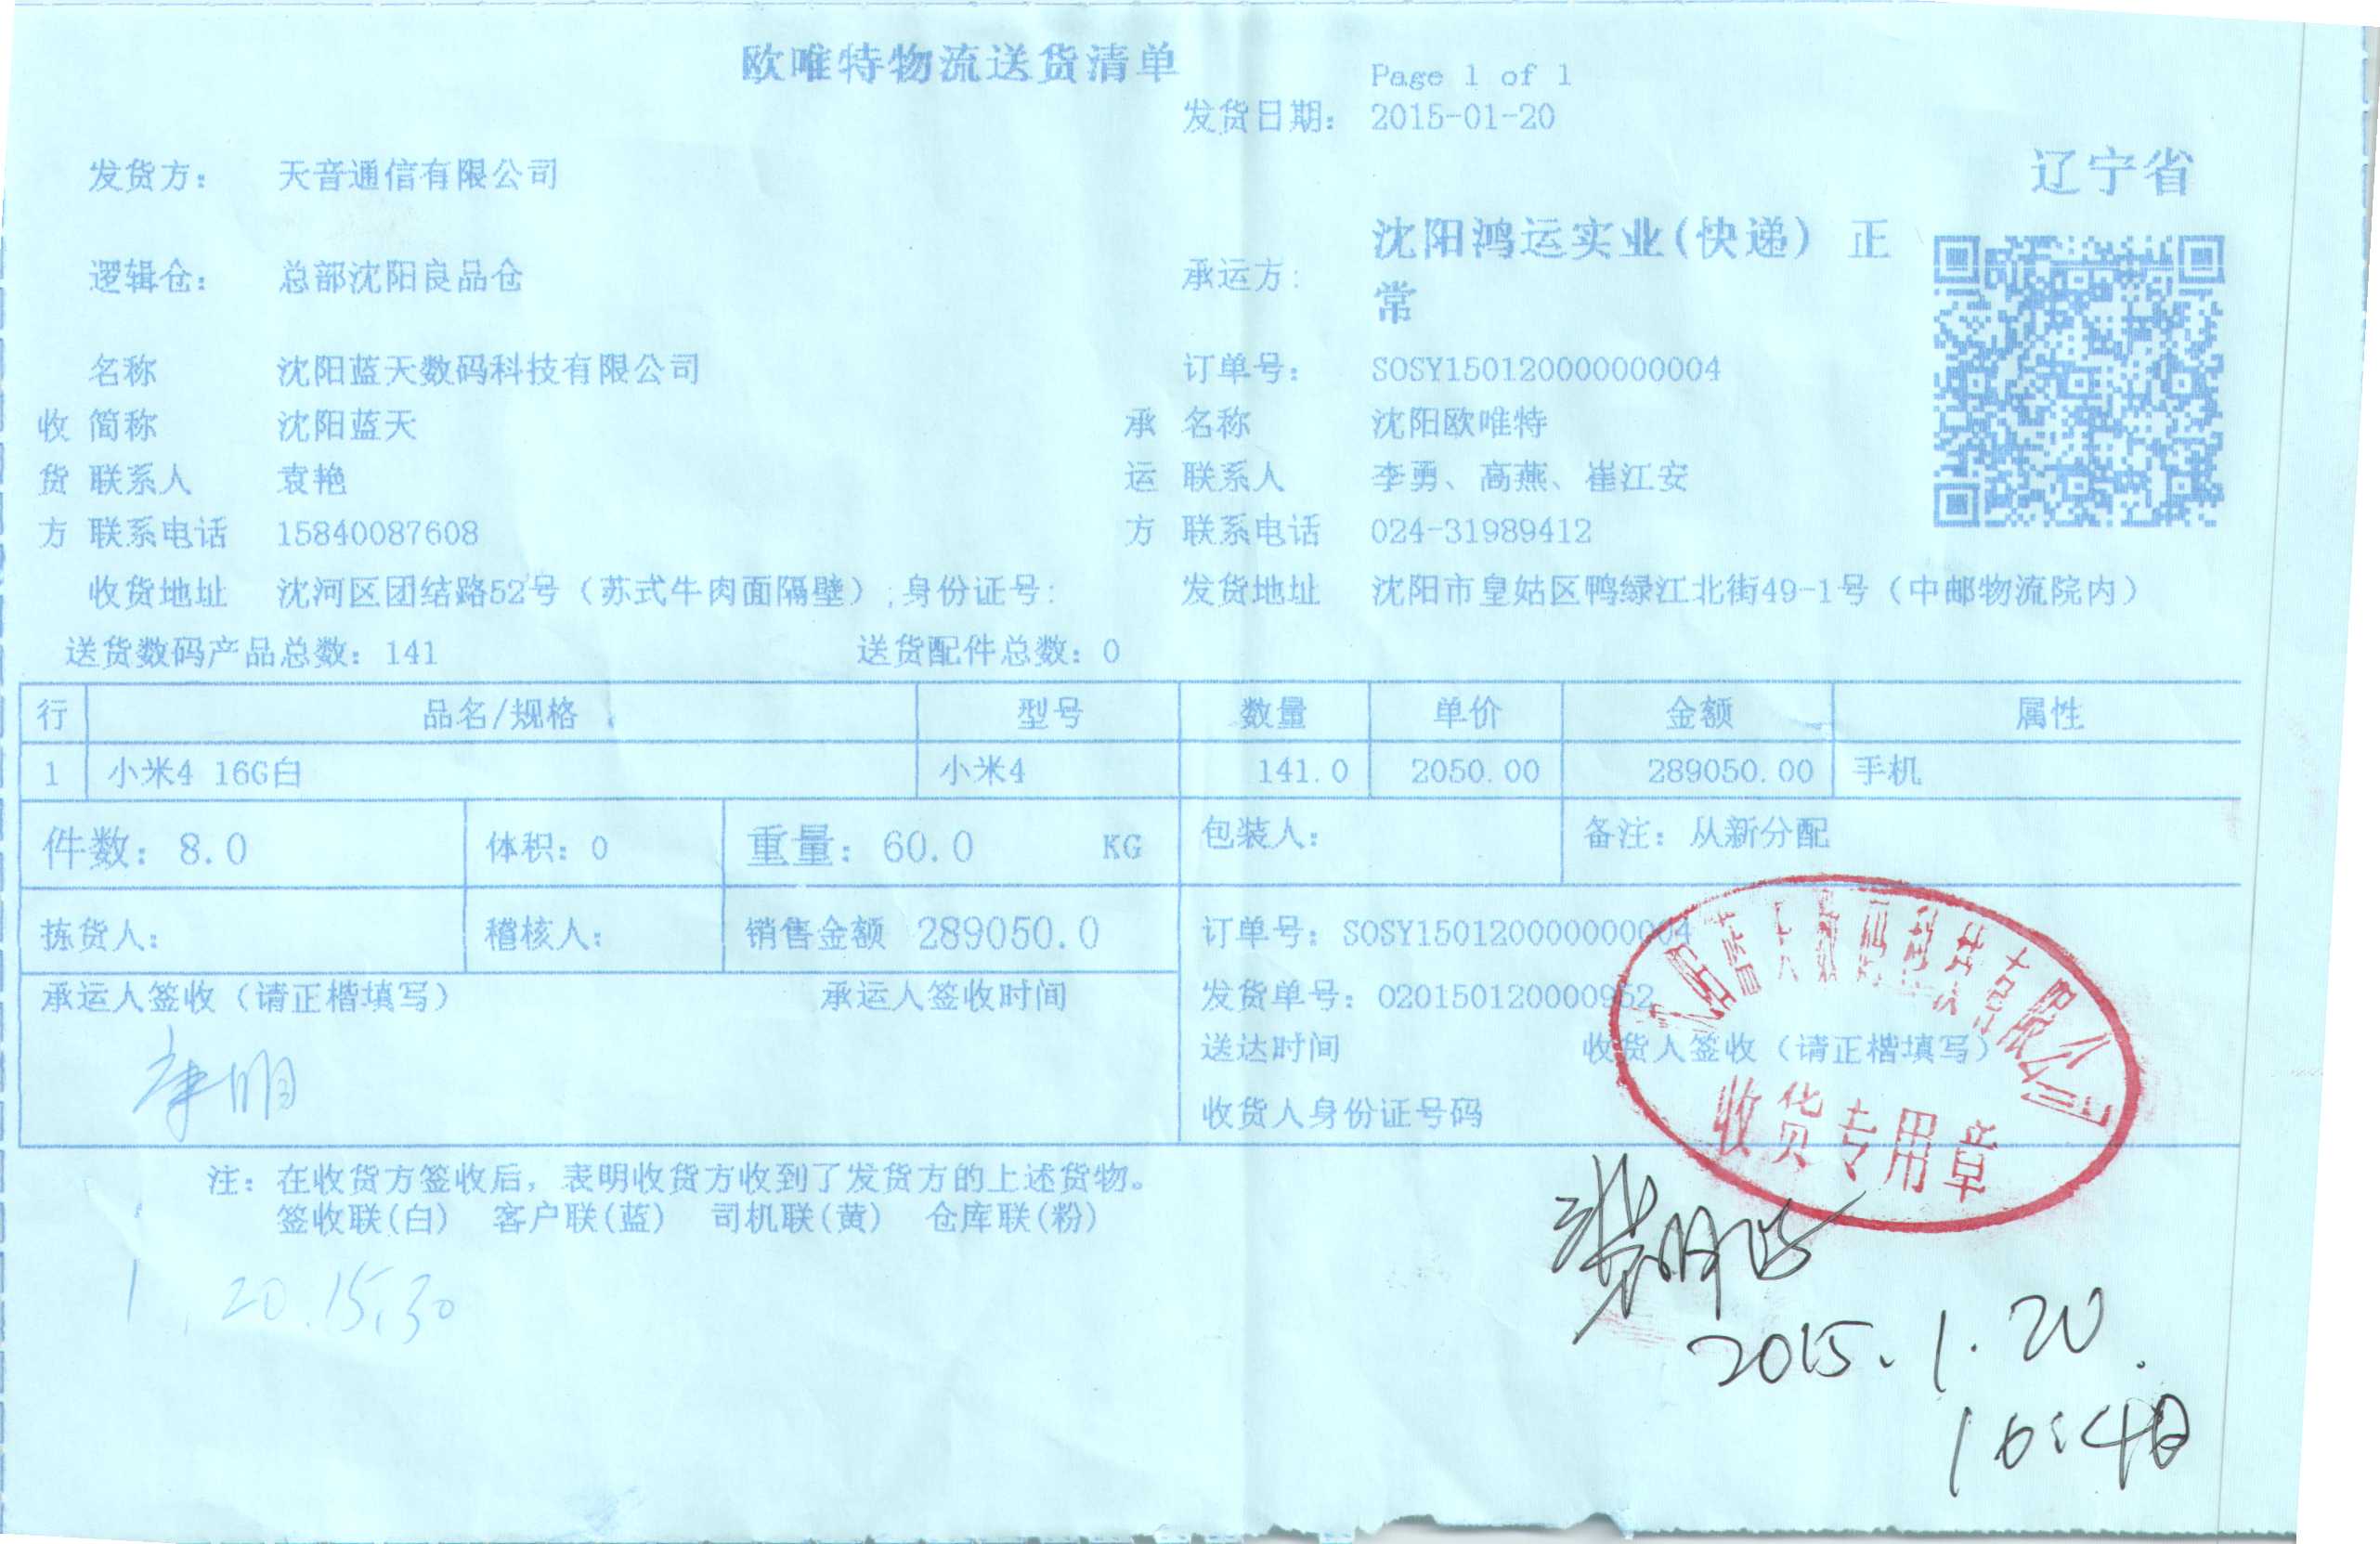 欧唯特物流送货清单
Page 1 of 1
发货日期: 2015-01-20
辽宁省
发货方: 天音通信有限公司
逻辑仓: 总部沈阳良品仓 承运方: 沈阳鸿运实业(快递) 正
常
名称 沈阳蓝天数码科技有限公司 订单号: SOSY150120000000004
收 简称 沈阳蓝天 承 名称 沈阳欧唯特
货 联系人 袁艳 运 联系人 李勇、高燕、崔江安
方 联系电话 15840087608 方 联系电话 024-31989412
收货地址 沈河区团结路52号（苏式牛肉面隔壁）;身份证号: 发货地址 沈阳市皇姑区鸭绿江北街49-1号（中邮物流院内）
送货数码产品总数: 141 送货配件总数: 0
行 品名/规格 型号 数量 单价 金额 属性
1 小米4 16G白 小米4 141.0 2050.00 289050.00 手机
件数: 8.0 体积: 0 重量: 60.0 KG 包装人: 备注: 从新分配
拣货人: 稽核人: 销售金额 289050.0 订单号: SOSY150120000000004
承运人签收（请正楷填写） 承运人签收时间 发货单号: 020150120000952
送达时间 收货人签收（请正楷填写）
收货人身份证号码
沈阳蓝天数码科技有限公司
收货专用章
注: 在收货方签收后, 表明收货方收到了发货方的上述货物。
签收联(白) 客户联(蓝) 司机联(黄) 仓库联(粉)
1.20.15.30
2015.1.20.
16:40